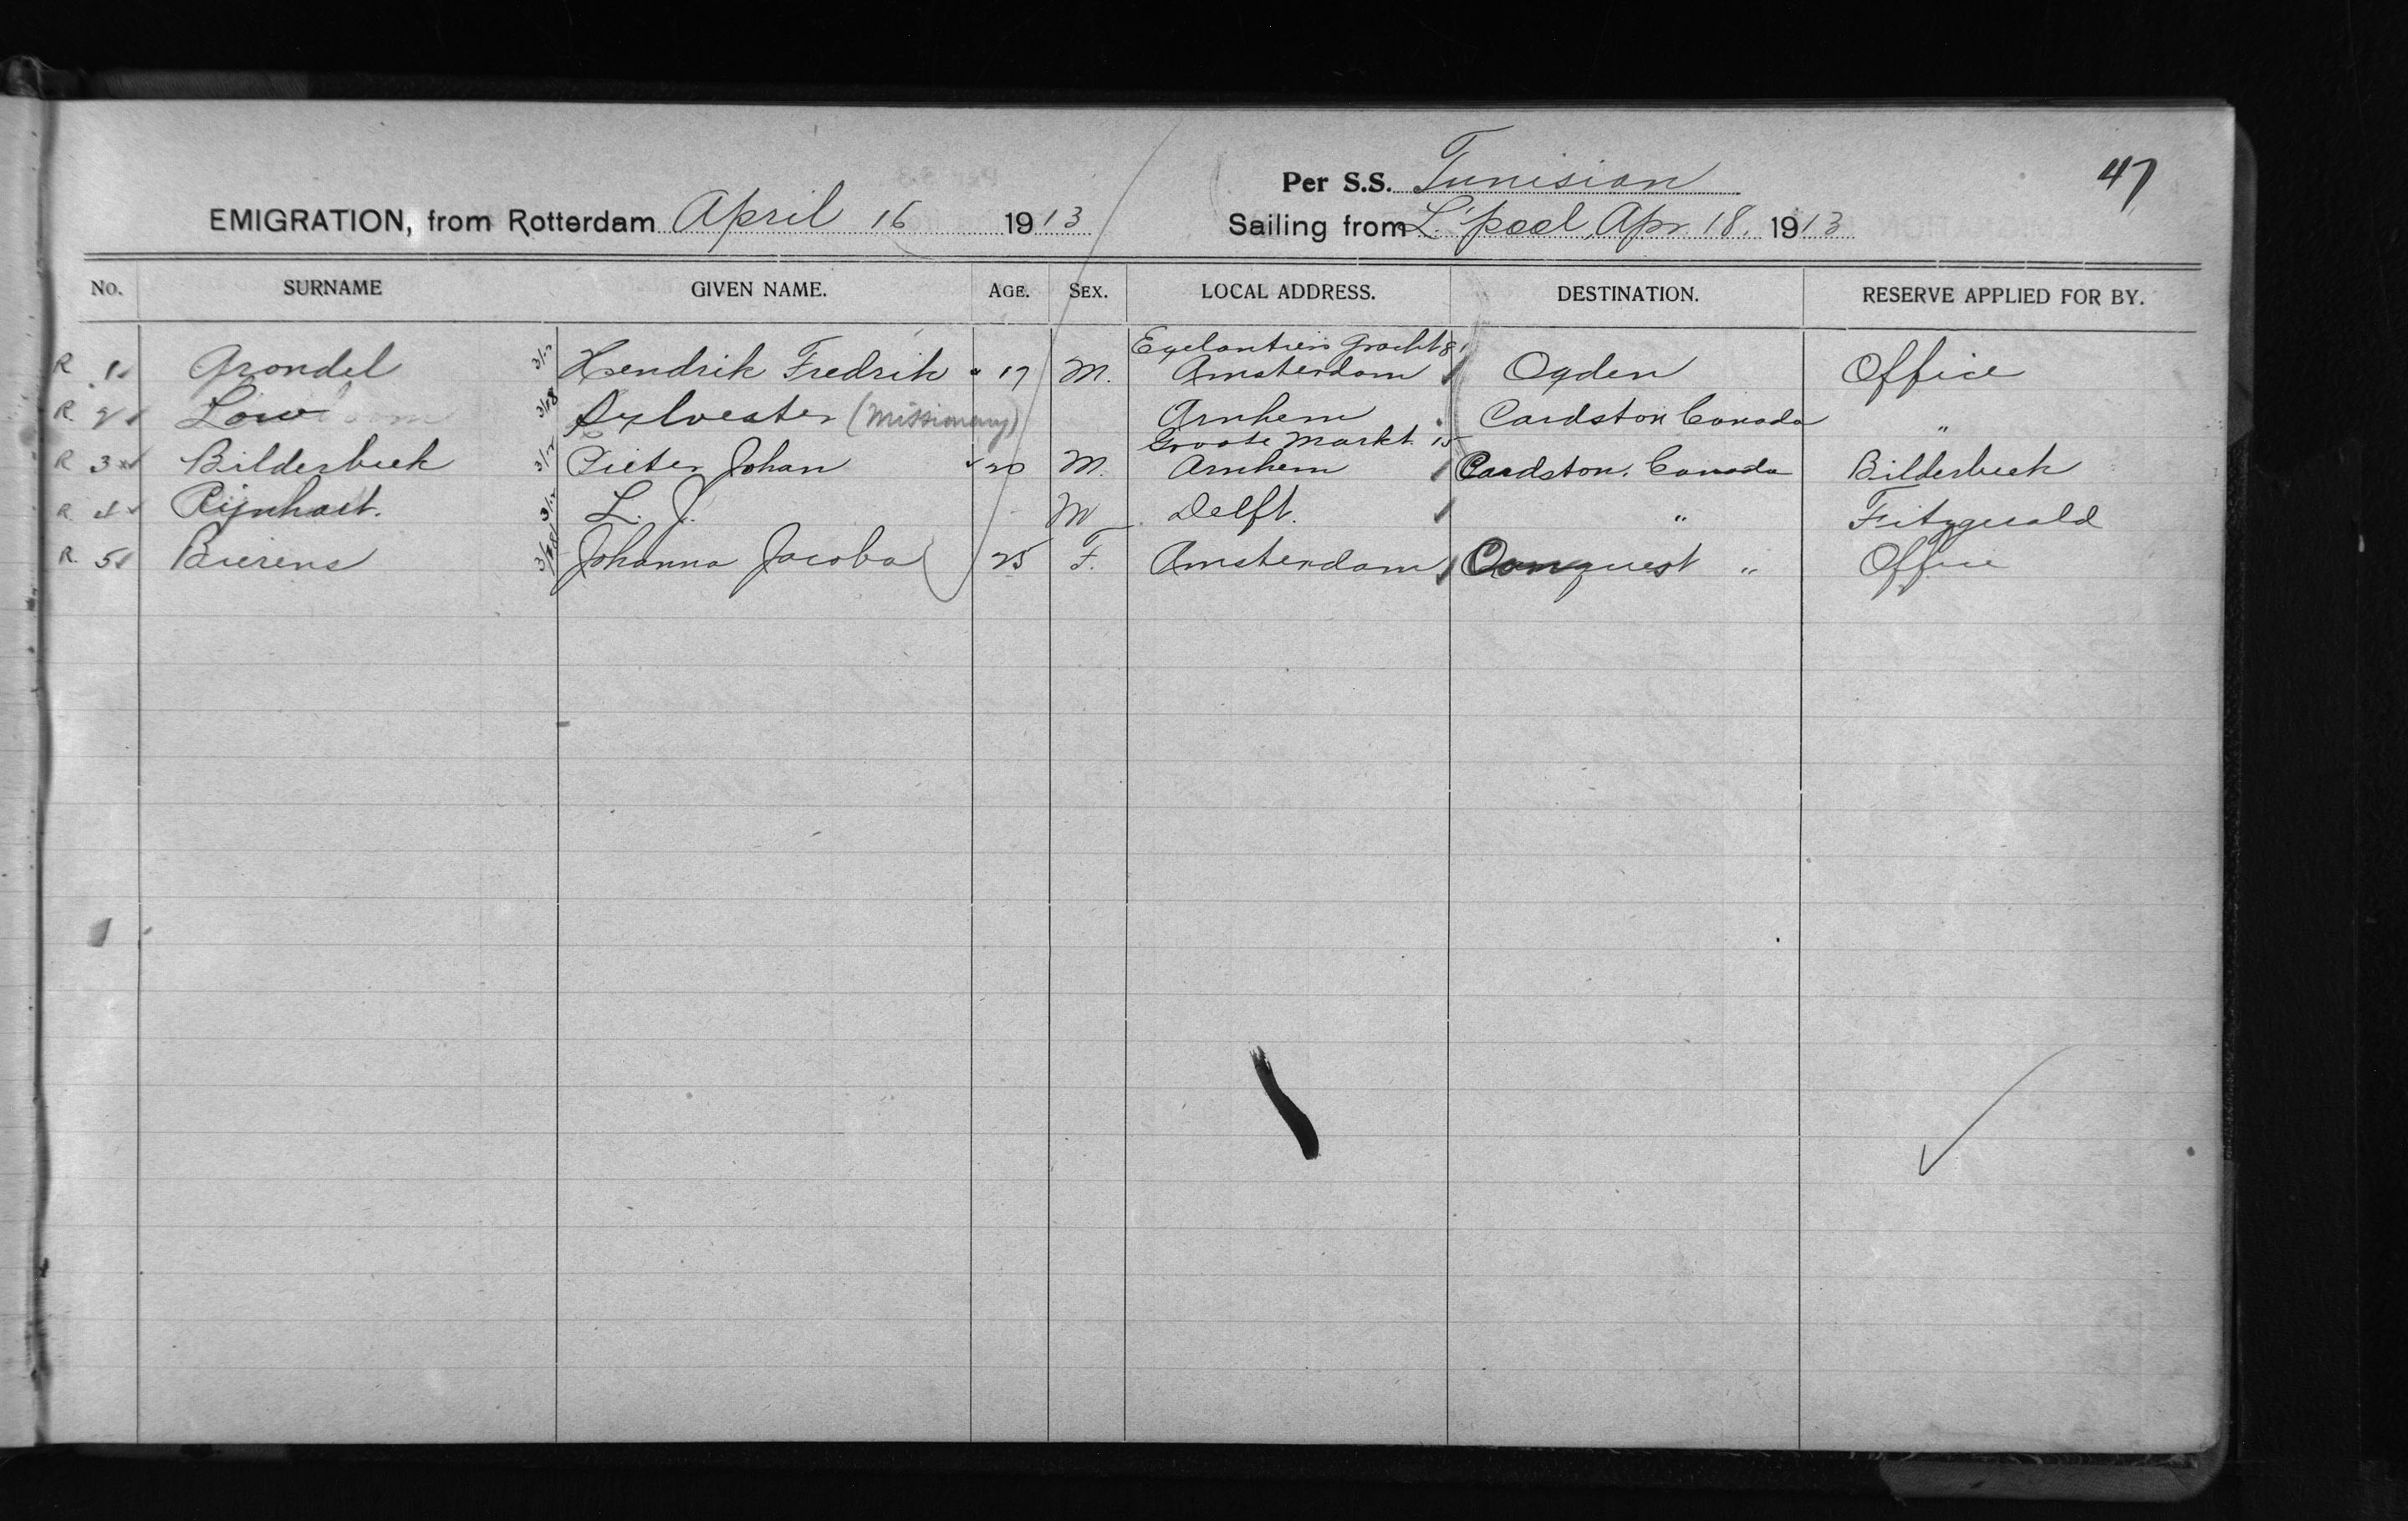 47
Per S.S. Tunisian
EMIGRATION, from Rotterdam April 16 1913 Sailing from L'pool, Apr. 18. 1913
No. SURNAME GIVEN NAME. AGE. SEX. LOCAL ADDRESS. DESTINATION. RESERVE APPLIED FOR BY.
Egelantiers Gracht 81
R 1 Grondel 3/17 Hendrik Fredrik 17 M. Amsterdam Ogden Office
R. 2 Low 3/18 Sylvester (Missionary) Arnhem Cardston Canada "
Groote Markt. 15
R 3 Bilderbeek 3/17 Pieter Johan 20 M. Arnhem Cardston. Canada Bilderbeek
R. 4 Rijnhart. 3/17 L. J. M Delft. " Fitzgerald
R. 5 Bierens Johanna Jacoba 25 F. Amsterdam Conquest " Office